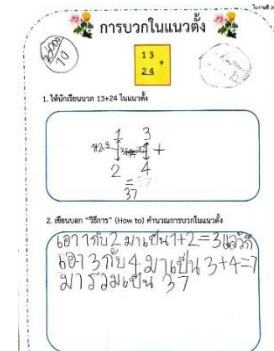 การบวกในแนวตั้ง
1 3
2 4 +
1. ให้นักเรียนบวก 13+24 ในแนวตั้ง
1 3
+
2 4
=
37
2. เขียนบอก "วิธีการ" (How to) คำนวณการบวกในแนวตั้ง
เอา 1 กับ 2 มาเป็น 1+2=3 แล้วก็
เอา 3 กับ 4 มาเป็น 3+4=7
มารวมเป็น 37